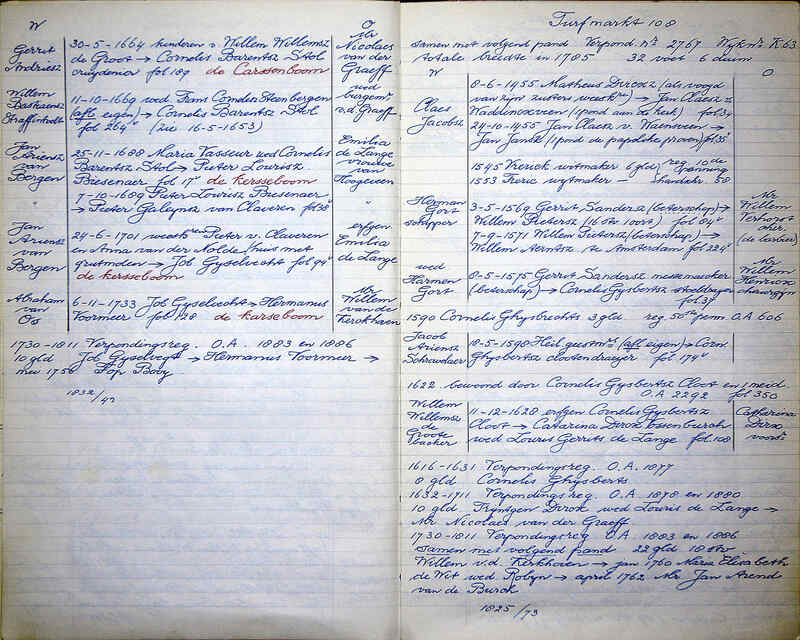 W
O
Gerrit
Andriesz
30-5-1664 kinderen v. Willem Willemsz
de Groot → Cornelis Barentsz Stol
cruydenier fol 189 de Carssenboom
Mr
Nicolaes
van der
Graeff
Willem
Bastiaensz
11-10-1669 wed Frans Cornelen Steenbergen
(afl eigen) → Cornelis Barentsz Stol
fol 264v (zie 16-5-1653)
wed
burgemr
v.d. Graeff
Jan
Ariensz
van
Bergen
25-11-1688 Maria Vasseur wed Cornelis
Barentsz Stol → Pieter Lourisz
Biesenaer fol 17v de kersseboom
7-10-1689 Pieter Lourisz Biesenaer
→ Pieter Galeynsz van Claveren fol 38v
Emilia
de Lange
vrouwe
van
Hoogeveen
"
"
Jan
Ariensz
van
Bergen
24-6-1701 v. Claveren
en Anna van der Nolde (huis met
→ Job Gyselvecht fol 94v
de kersseboom
erfgen
Emilia
de Lange
Abraham
van
Os
6-11-1733 Job Gyselvecht → Hermanus
Voormeer fol 128 de karseboom
Mr
Willem
van de
Kerckhoven
1730-1811 Verpondingsreg. O.A. 1883 en 1886
10 gld Job Gyselvegt → Hermanus Voormeer →
mei 1756 Fop Booy
1832/47
Turfmarkt 108
samen met volgend pand Verpond. nr 2767 Wyk nr K 63
totale breedte in 1785 32 voet 6 duim
W
O
Claes
Jacobsz
8-6-1455 Matheus Dircxz (als voogd
van zijn zusters) → Jan Claesz v.
Waddinxveen (1 pond aen de kerk) fol 34
24-10-1455 Jan Claesz v. Waensveen →
Jan Jansz (1 pond de papelike proven) fol 35v
1545 witmaker 6 gld reg. 10de penning
1553 witmaker — " — haardst. 50
Herman
Gort
schipper
3-5-1569 Gerrit Sandersz (beterschap) →
Willem Pietersz (16 str 1 oort)
7-9-1571 Willem Pietersz (beterschap) →
Willem Aerntsz te Amsterdam fol 224v
Mr
Willem
Terhorst
chir.
(de barbier)
wed
Harmen
Gort
8-5-1575 Gerrit Sandersz messemaker
(beterschap) → Cornelis Gysbertsz stoeldrayer
fol 37v
Mr
Willem
Henricxz
chirurgijn
1590 Cornelis Ghysbrechts 3 gld reg 50ste penn O.A 606
Jacob
Ariensz
Schravelaer
18-5-1598 Heil. gestmrs (afl eigen) → Corn.
Ghysbertsz clootendraijer fol 174v
1622 bewoond door Cornelis Gysbertsz Cloot en 1 meid.
O.A 2292 fol 350
Willem
Willemsz
de
Groote
backer
11-12-1628 erfgen Cornelis Gysbertsz
Cloot → Catarina Dircx Essenburch
wed Louris Gerrits de Lange fol 108
Catherina
Dircx
voorsz
1616-1631 Verpondingsreg. O.A. 1877
8 gld Cornelis Ghysberts
1632-1711 Verpondingsreg. O.A. 1878 en 1880
10 gld Tryntgen Dircx wed Louris de Lange →
Mr. Nicolaes van der Graeff
1730-1811 Verpondingsreg O.A. 1883 en 1886
samen met volgend pand 22 gld 18 str
Willem v.d. Kerkhoven → jan 1760 Maria Elisabeth
de Wit wed Robyn → april 1762 Mr Jan Arend
van de Burch
1825/73